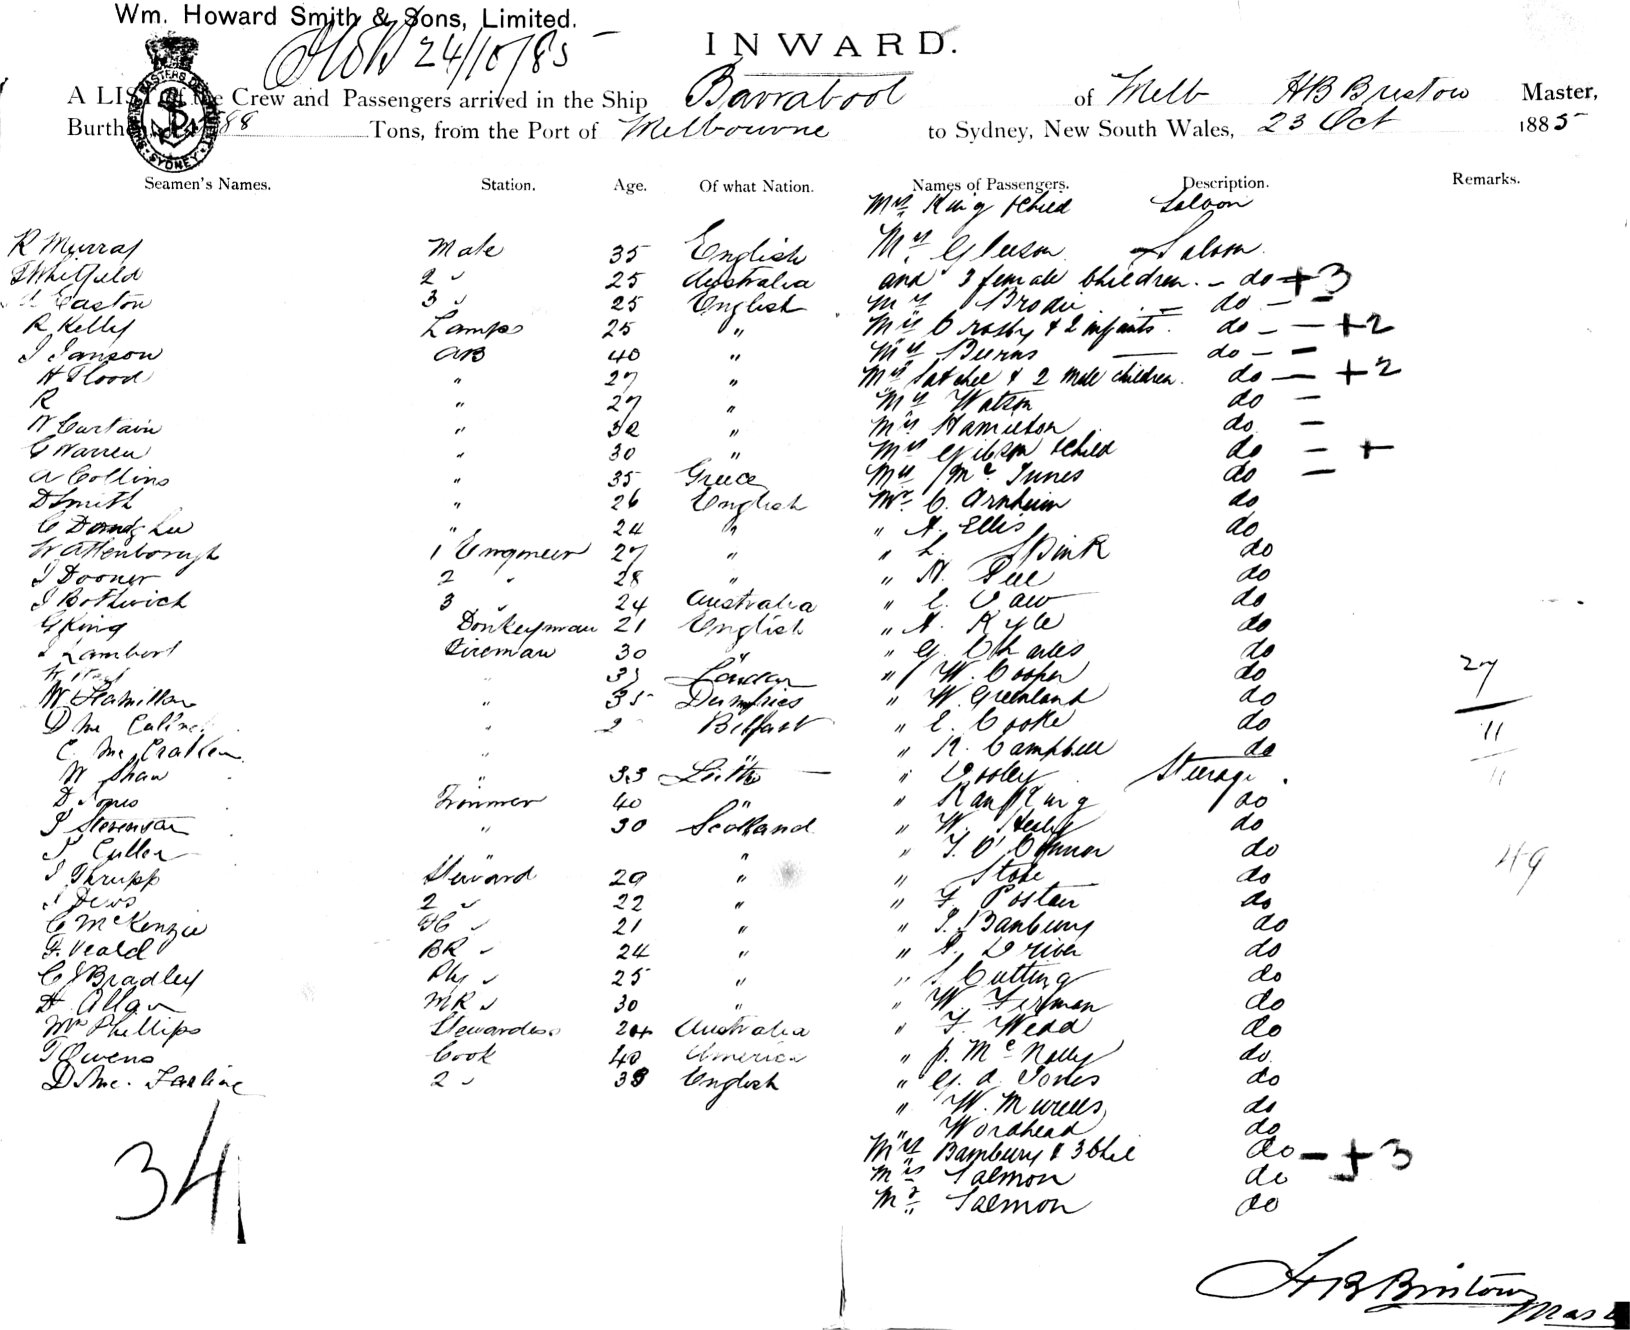 Wm. Howard Smith & Sons, Limited.
24/10/85
INWARD.
A LIST of the Crew and Passengers arrived in the Ship Barrabool of Melb HB Bristow Master,
Burthen Tons, from the Port of Melbourne to Sydney, New South Wales, 23 Oct 1885
SYDNEY
Seamen's Names. Station. Age. Of what Nation. Names of Passengers. Description. Remarks.
Mrs King & Child Saloon
R Murray Mate 35 English Mrs Gleeson Saloon
Whitfield 2 " 25 Australia and 3 female children. - do + 3
Easton 3 " 25 English Mrs Brodie - do - -
R Kelly Lamps 25 " Mrs Crosby & 2 infants. do - - + 2
J Janson AB 40 " Mrs Burns — do - -
H Flood " 27 " Mrs Satchel & 2 male children. do - + 2
R " 27 " Mrs Watson do -
W Curtain " 32 " Mrs Hamilton do -
C Warren " 30 " Mrs Gibson & Child do - +
A Collins " 35 Greece Mrs McInnes do -
D Smith " 26 English Mr C. Arnheim do
C " 24 " " A. Ellis do
W Attenborough 1 Engineer 27 " " L. Spink do
J Dooner 2 " 28 " " H. Pee do
J Bothwick 3 " 24 Australia " C. Daw do
G King Donkeyman 21 English " A. Kyle do
J Lambert Fireman 30 " " G. Charles do
" London " W. Cooper do 27
W Hamilton " 35 Dumfries " W. Greenland do
D Mc " Belfast " E. Cooke do 11
C. Mc Cracken " " K. Campbell do
W Shaw " 33 Leith — " Steerage. 11
D Jones Trimmer 40 " " King do
J Stevenson " 30 Scotland " W. Healy do
Cullen " " " T. O'Connor do 49
J Thrupp Steward 29 " " Stone do
J Dews 2 " 22 " " F. Postan do
C McKenzie 21 " " J. Banbury do
F. Veald BR " 24 " " Driver do
C J Bradley Pty " 25 " " S Cutting do
H Allan MR " 30 " " W. Firman do
Mrs Phillips Stewardess 24 Australia " F. Wedd do
T Owens Cook 40 America " P. McNally do
D. Mc. Farline 2 " 38 English " G. A. Jones do
" W. Murells do
" Wordhead do
34 Mrs Bambury & 3 Chil do - + 3
Mrs Salmon do
Mr Salmon do
HB Bristow
Mast